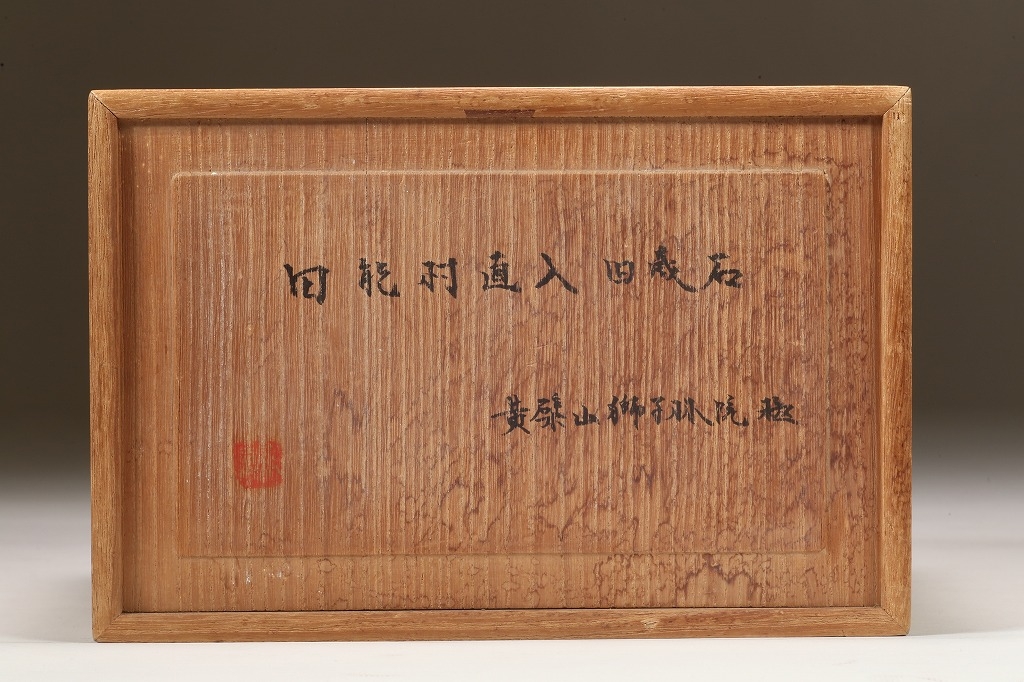 田能村直入旧蔵石
黄檗山獅子林院蔵